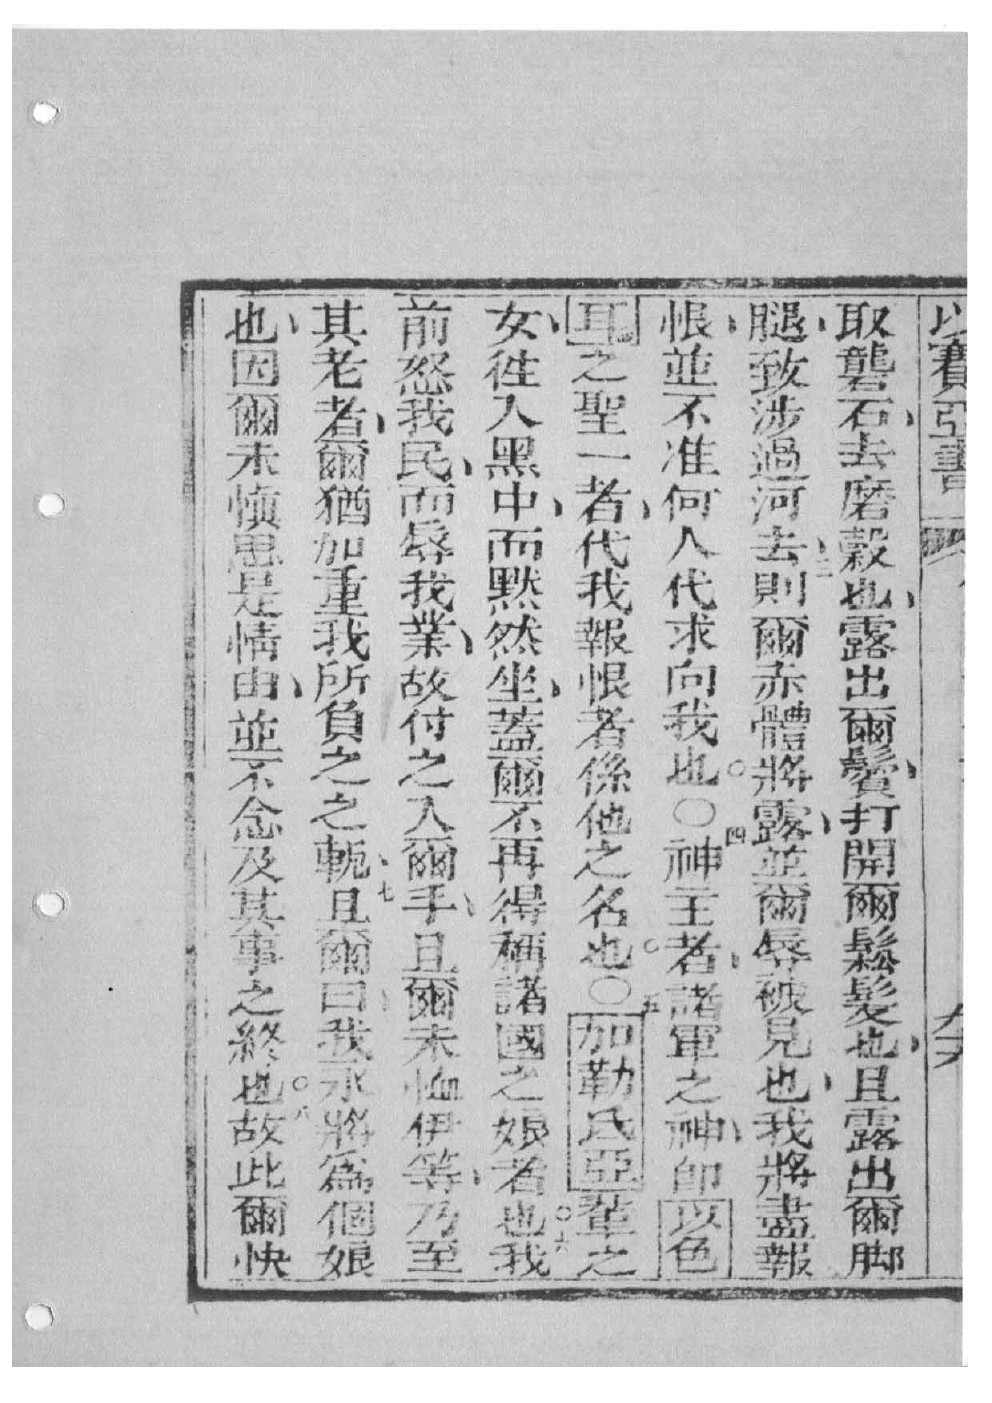 以賽亞書
九六
取礱石去磨榖也露出爾鬢打開爾鬆髮也且露出爾脚
腿致涉過河去三則爾赤體將露並爾辱被見也我將盡報
恨並不准何人代求向我也○四神主者諸軍之神卽以色
耳之聖一者代我報恨者係他之名也○五加勒氏亞輩之
女徃入黑中而默然坐蓋爾不再得稱諸國之娘者也六我
前怒我民而辱我業故付之入爾手且爾未恤伊等乃至
其老者爾猶加重我所負之之軛七且爾曰我永將爲個娘
也因爾未愼思是情由並不念及其事之終也八故此爾快